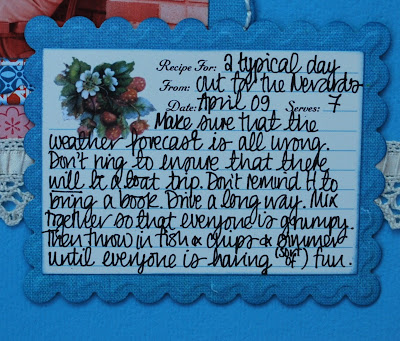 Recipe For: a typical day
From: out for the Nerards
Date: April 09 Serves: 7
Make sure that the
weather forecast is all wrong.
Don't ring to ensure that there
will be a boat trip. Don't remind H to
bring a book. Drive a long way. Mix
together so that everyone is grumpy.
Then throw in fish & chips & simmer
until everyone is having (sort of) fun.